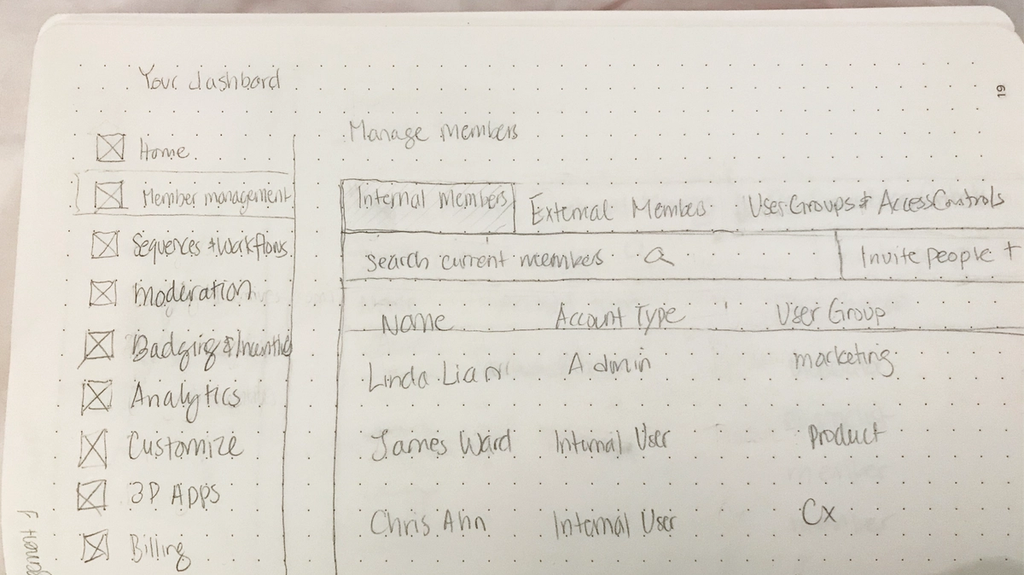 19
Your dashbord
Manage members
Home
Member management
Sequences + Workflows
Moderation
Badging & Incentive
Analytics
Customize
3P Apps
Billing
Internal members
External Members
User Groups & Access Controls
Search current members
Invite people +
Name Account Type User Group
Linda Lian Admin marketing
James Ward Internal User Product
Chris Ahn Internal User Cx